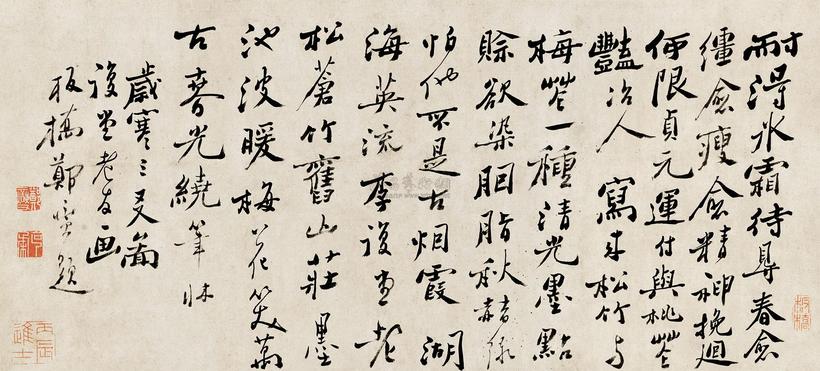 耐得冰霜待得春愈
僵愈瘦愈精神挽迴
何限貞元運付與桃花
豔冶人寫來松竹與
梅花一種清光墨點
賒欲染胭脂秋赭綠
怕他不是古烟霞湖
海英流李復堂老
松蒼竹舊山莊墨
池波暖梅花笑萬
古春光繞筆牀
歲寒三友圖
復堂老友画
板橋鄭燮題
丙辰進士
板橋